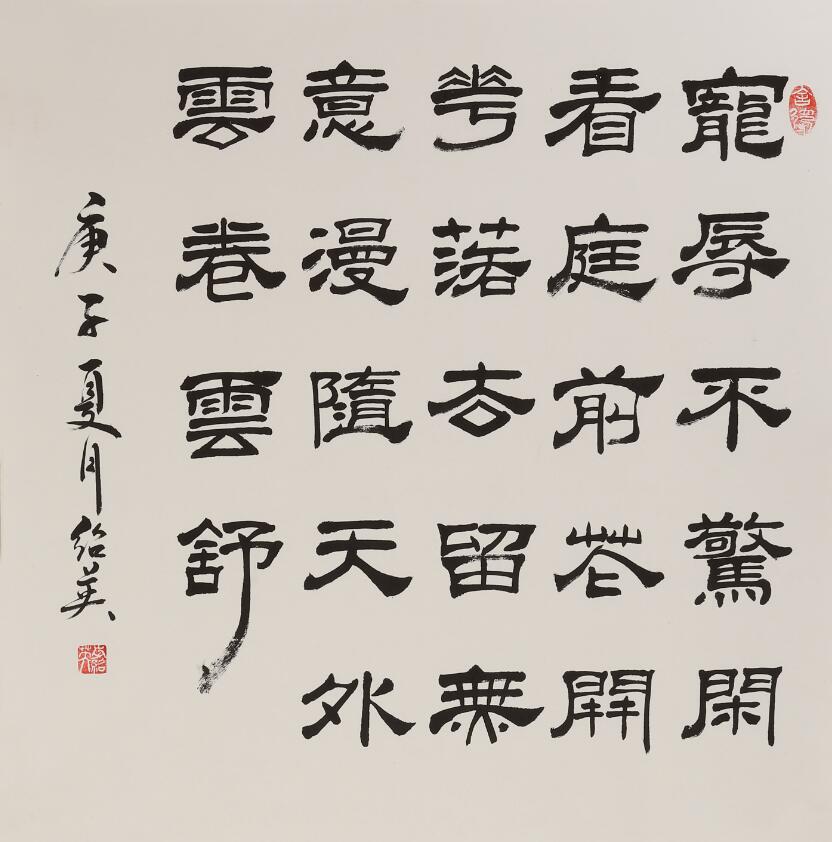 寵辱不驚閑
看庭前花開
華落去留無
意漫隨天外
雲卷雲舒
庚子夏月紹英